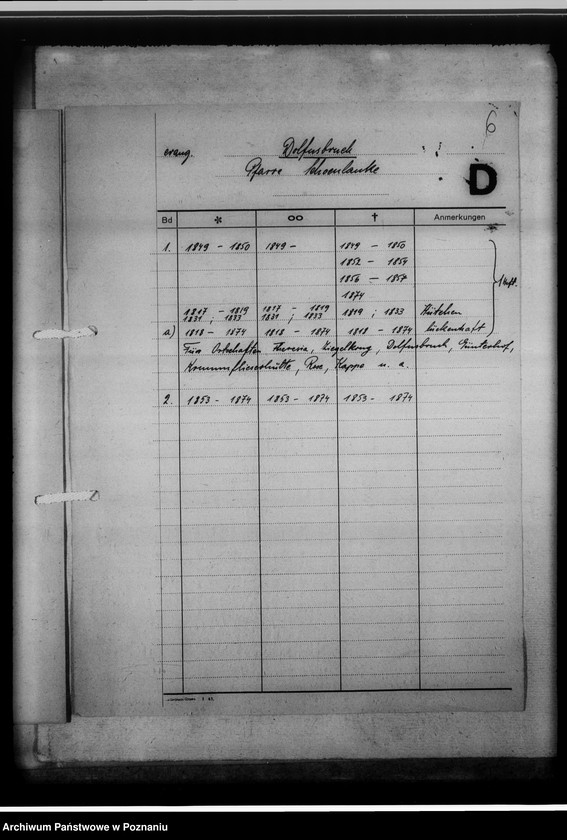 6
evang. Dolfusbruch
Pfarre Schoenlanke
D
Bd * oo † Anmerkungen
1. 1849 - 1850 1849 - 1849 - 1850
1852 - 1854
1856 - 1857
1874
1 Aufn.
1817 - 1819 1817 - 1819
1831 ; 1833 1831 ; 1833 1819 ; 1833
a) 1818 - 1874 1818 - 1874 1818 - 1874 lückenhaft
Für Ortschaften Theresia, Ziegelkrug, Dolfusbruch, Günterhof,
Krummfliesserhütte, Rose, Kappe u. a.
2. 1853 - 1874 1853 - 1874 1853 - 1874
Archiwum Państwowe w Poznaniu